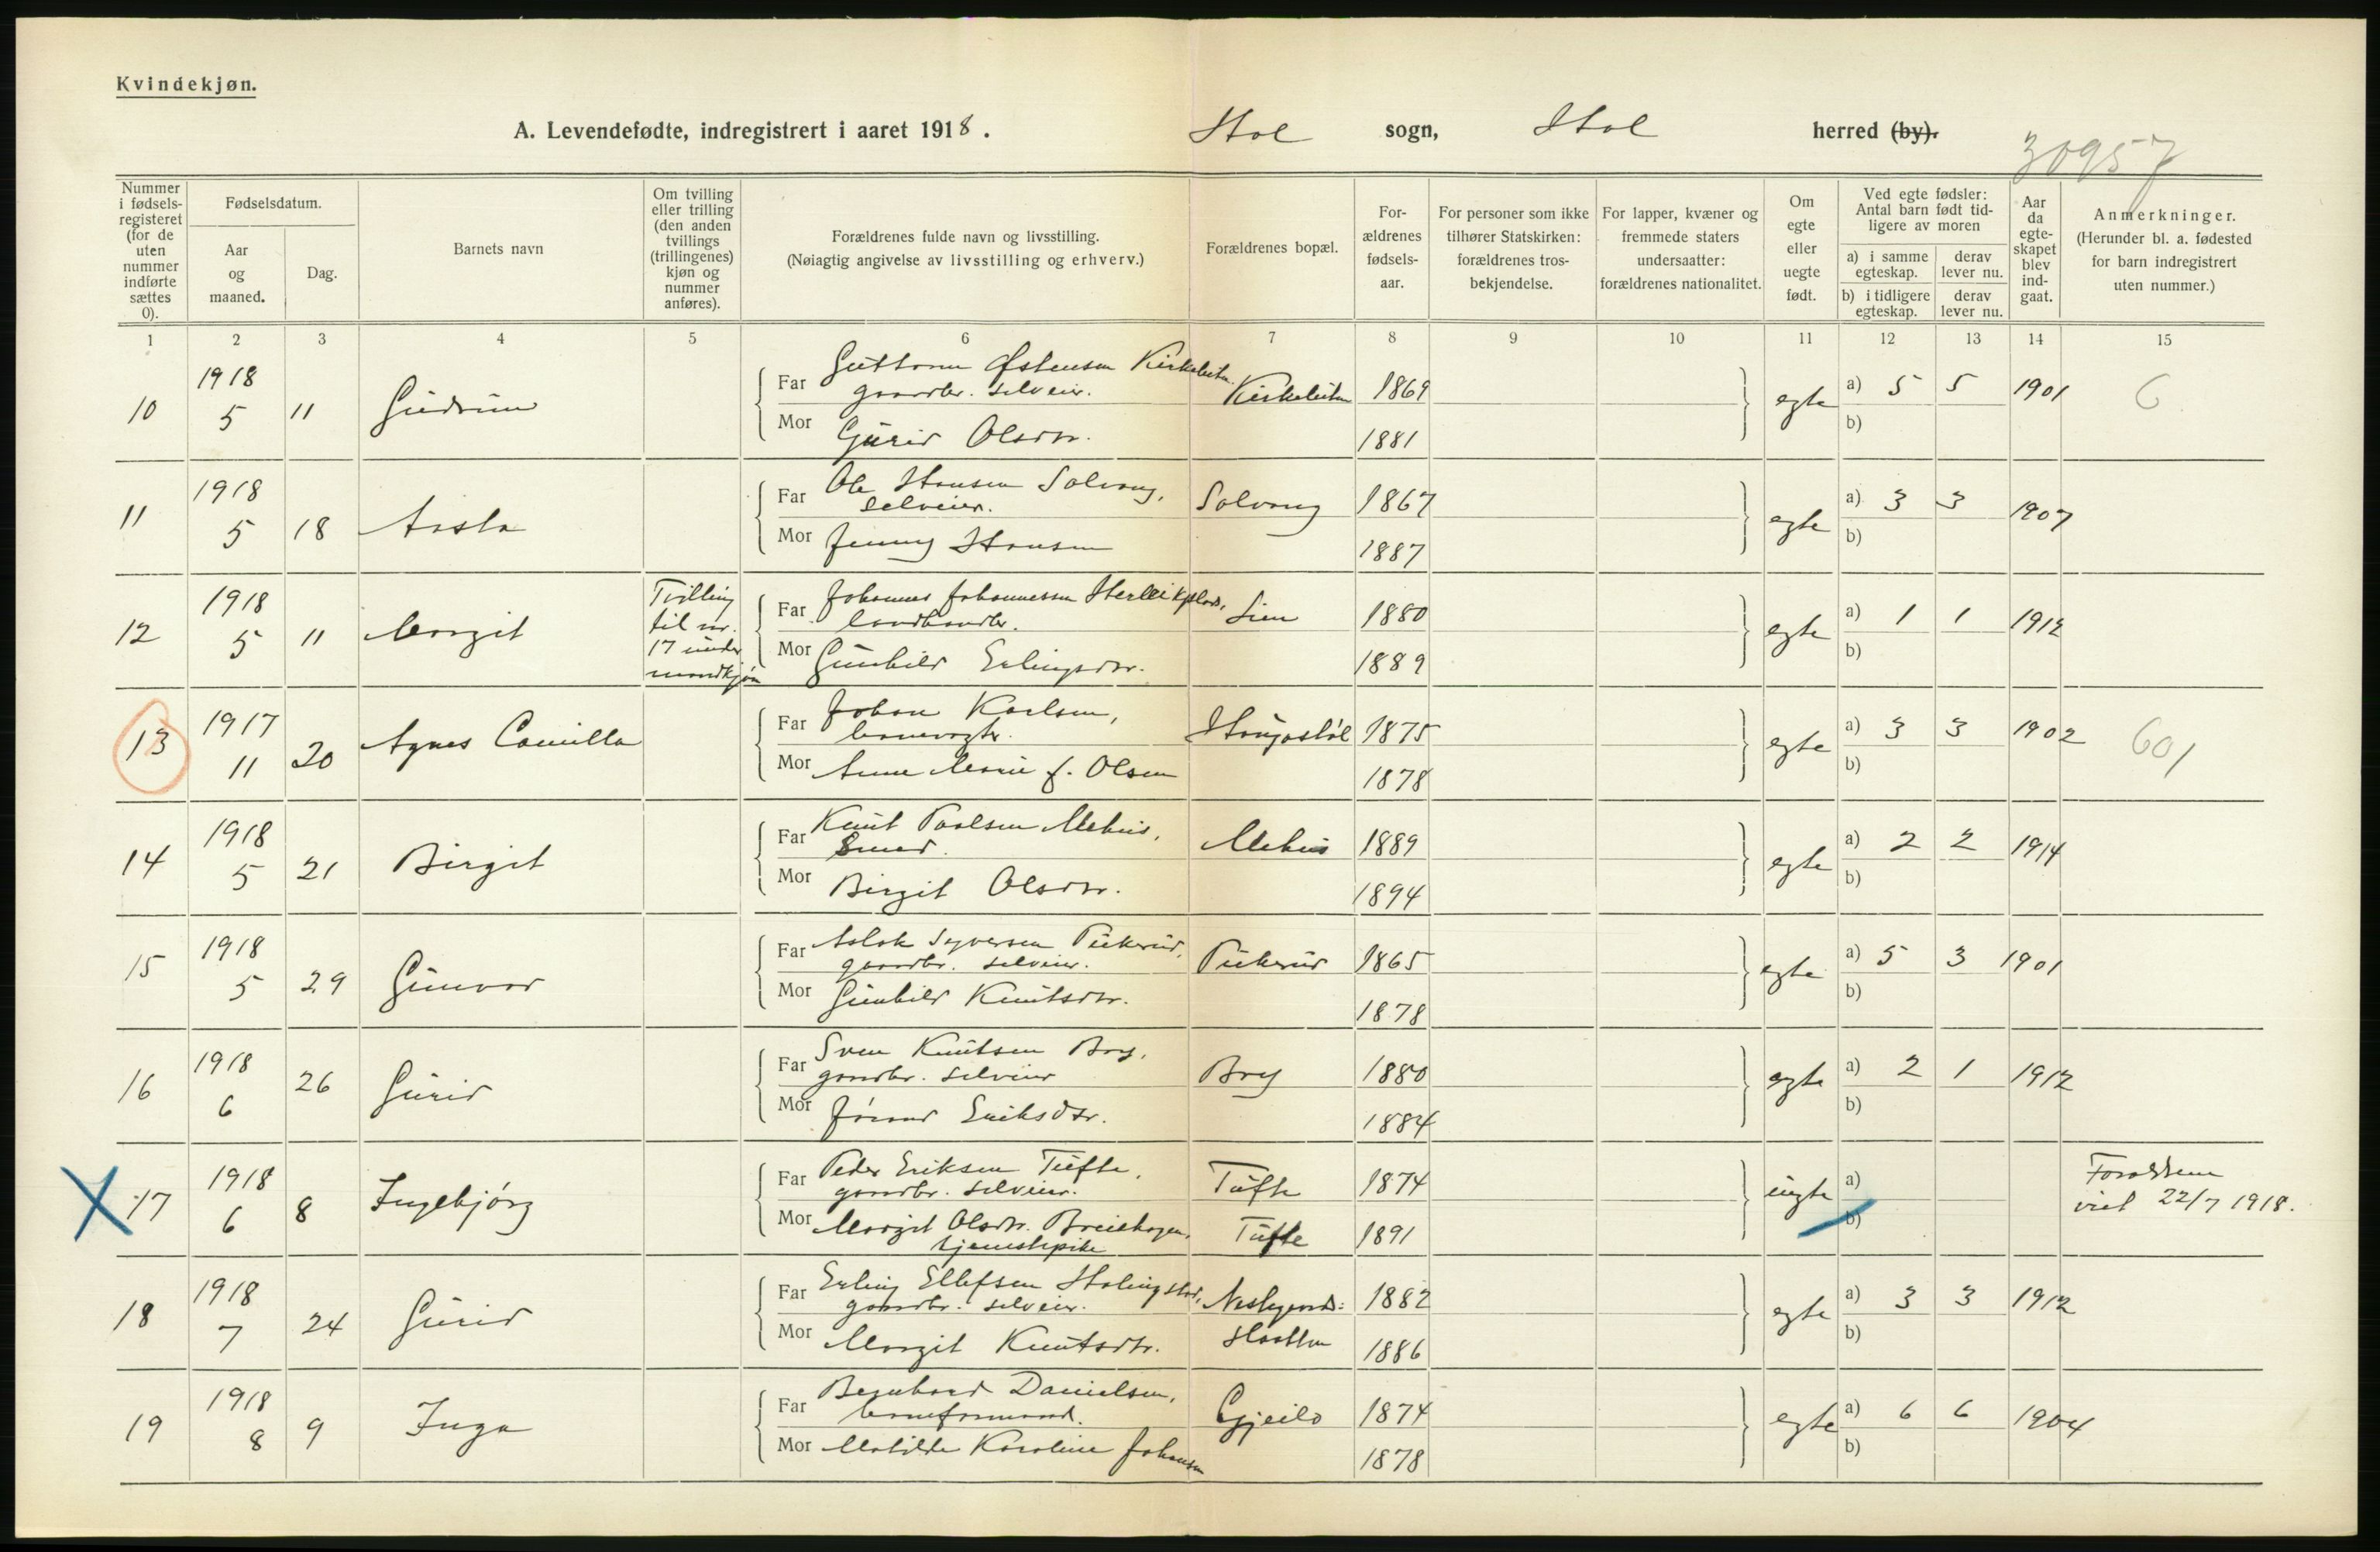 Kvindekjøn.
A. Levendefødte, indregistrert i aaret 1918. Hol sogn, Hol herred (by).
30957
Nummer i fødsels-registeret (for de uten nummer indførte sættes 0).
Fødselsdatum.
Aar og maaned.
Dag.
Barnets navn
Om tvilling eller trilling (den anden tvillings (trillingenes) kjøn og nummer anføres).
Forældrenes fulde navn og livsstilling.
(Nøiagtig angivelse av livsstilling og erhverv.)
Forældrenes bopæl.
For-ældrenes fødsels-aar.
For personer som ikke tilhører Statskirken: forældrenes tros-bekjendelse.
For lapper, kvæner og fremmede staters undersaatter: forældrenes nationalitet.
Om egte eller uegte født.
Ved egte fødsler: Antal barn født tid-ligere av moren
a) i samme egteskap.
derav lever nu.
b) i tidligere egteskap.
derav lever nu.
Aar da egte-skapet blev ind-gaat.
Anmerkninger.
(Herunder bl. a. fødested for barn indregistrert uten nummer.)
1 2 3 4 5 6 7 8 9 10 11 12 13 14 15
10 1918 5 11 Gudrun
Far Guttorm Østensen Kirkebitn. Kirkebitn 1869 egte a) 5 5 1901 6
gaardbr. selveier.
Mor Gurid Olsdtr. 1881 b)
11 1918 5 18 Aasta
Far Ole Hansen Solvang, Solvang 1867 egte a) 3 3 1907
selveier.
Mor Jenny Hansen 1887 b)
12 1918 5 11 Margit Tvilling til nr. 17 under mandkjøn
Far Johannes Johannessen Herleikplads, Lien 1880 egte a) 1 1 1912
landhandler.
Mor Gunhild Erlingsdtr. 1889 b)
13 1917 11 20 Agnes Camilla
Far Johan Karlsen, Haugastøl 1875 egte a) 3 3 1902 601
banevogter.
Mor Anne Marie f. Olsen 1878 b)
14 1918 5 21 Birgit
Far Knut Paalsen Mehus, Mehus 1889 egte a) 2 2 1914
Smed.
Mor Birgit Olsdtr. 1894 b)
15 1918 5 29 Gunvor
Far Aslak Syversen Pukerud, Pukerud 1865 egte a) 5 3 1901
gaardbr. selveier.
Mor Gunhild Knutsdtr. 1878 b)
16 1918 6 26 Gurid
Far Sven Knutsen Bry, Bry 1880 egte a) 2 1 1912
gaardbr. selveier
Mor Jørand Eriksdtr. 1884 b)
X 17 1918 6 8 Ingebjørg
Far Peder Eriksen Tufte, Tufte 1874 uegte a) Forældrene viet 22/7 1918.
gaardbr. selveier.
Mor Margit Olsdtr. Breiehagen, Tufte 1891 b)
tjenestepike
18 1918 7 24 Gurid
Far Erling Ellefsen Holingstad, Neslegaard: 1882 egte a) 3 3 1912
gaardbr. selveier.
Mor Margit Knutsdtr. 1886 b)
19 1918 8 9 Inga
Far Bernhard Danielsen, Gjeilo 1874 egte a) 6 6 1904
baneformand.
Mor Matilde Karoline Johansen 1878 b)